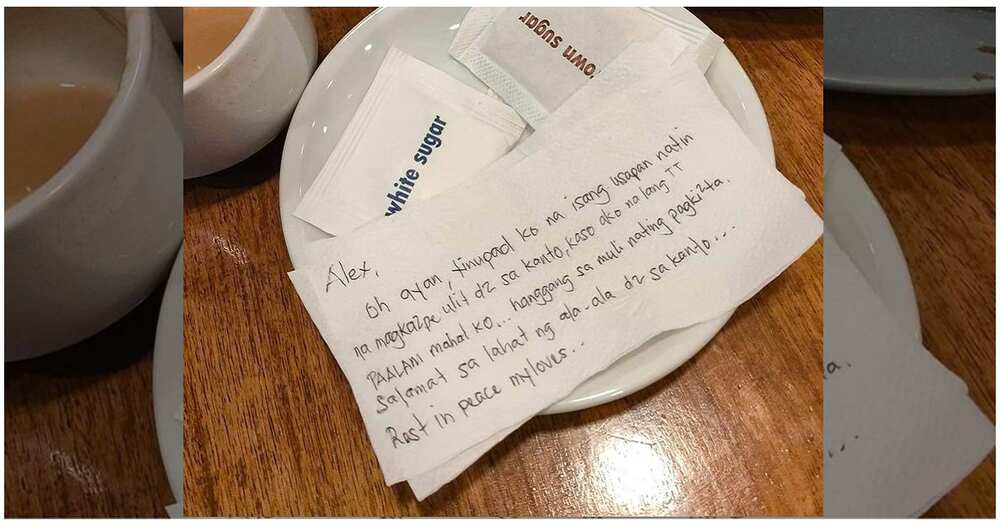 own sugar
white sugar
Alex,
Oh ayan, tinupad ko na isang usapan natin
na magka2pe ulit d2 sa kanto, kaso ako na lang TT
PAALAM mahal ko... hanggang sa muli nating pagki2ta.
salamat sa lahat ng ala-ala d2 sa kanto...
Rest in peace myloves..